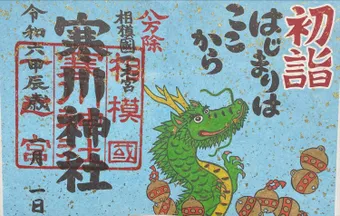 初詣
はじまりは
ここから
八方除
相模國一之宮
寒川神社
相模國
令和六甲辰歳
一月一日